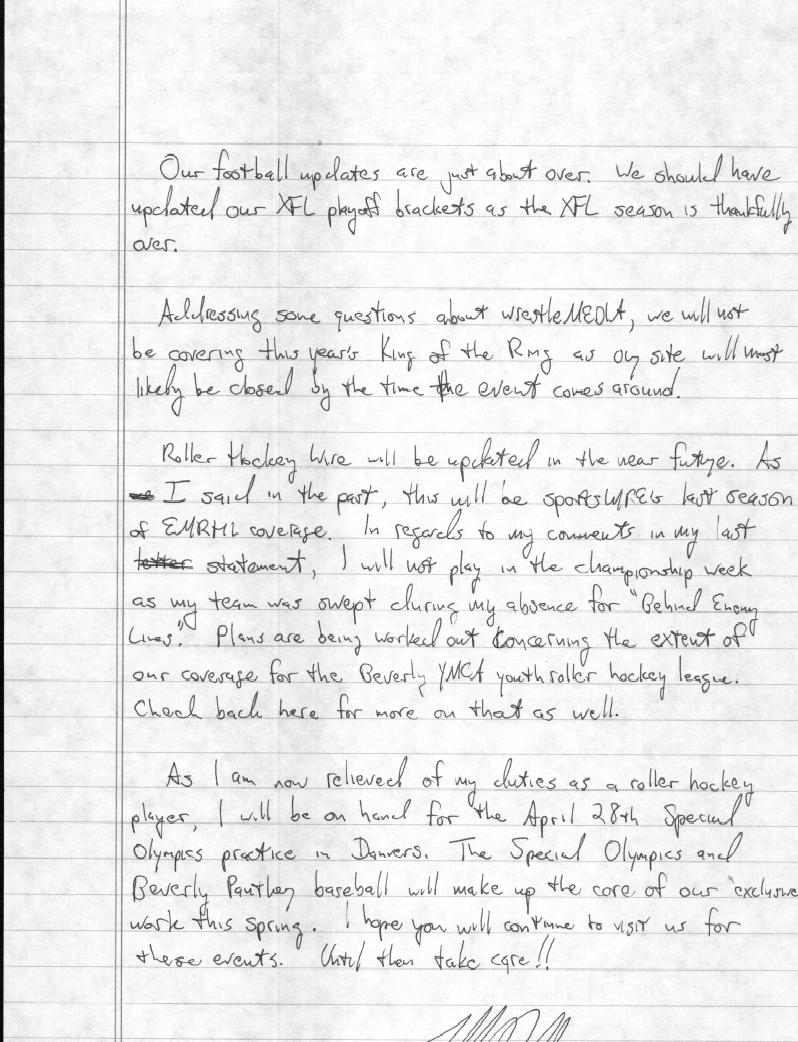 Our football updates are just about over. We should have
updated our XFL playoff brackets as the XFL season is thankfully
over.
Addressing some questions about wrestleMEDIA, we will not
be covering this year's King of the Ring as our site will most
likely be closed by the time the event comes around.
Roller Hockey Wire will be updated in the near future. As
I said in the past, this will be sportsWIRE's last season
of EMRHL coverage. In regards to my comments in my last
letter statement, I will not play in the championship week
as my team was swept during my absence for "Behind Enemy
Lines". Plans are being worked out concerning the extent of
our coverage for the Beverly YMCA youth roller hockey league.
Check back here for more on that as well.
As I am now relieved of my duties as a roller hockey
player, I will be on hand for the April 28th Special
Olympics practice in Danvers. The Special Olympics and
Beverly Panther baseball will make up the core of our "exclusive
work this spring. I hope you will continue to visit us for
these events. Until then take care!!